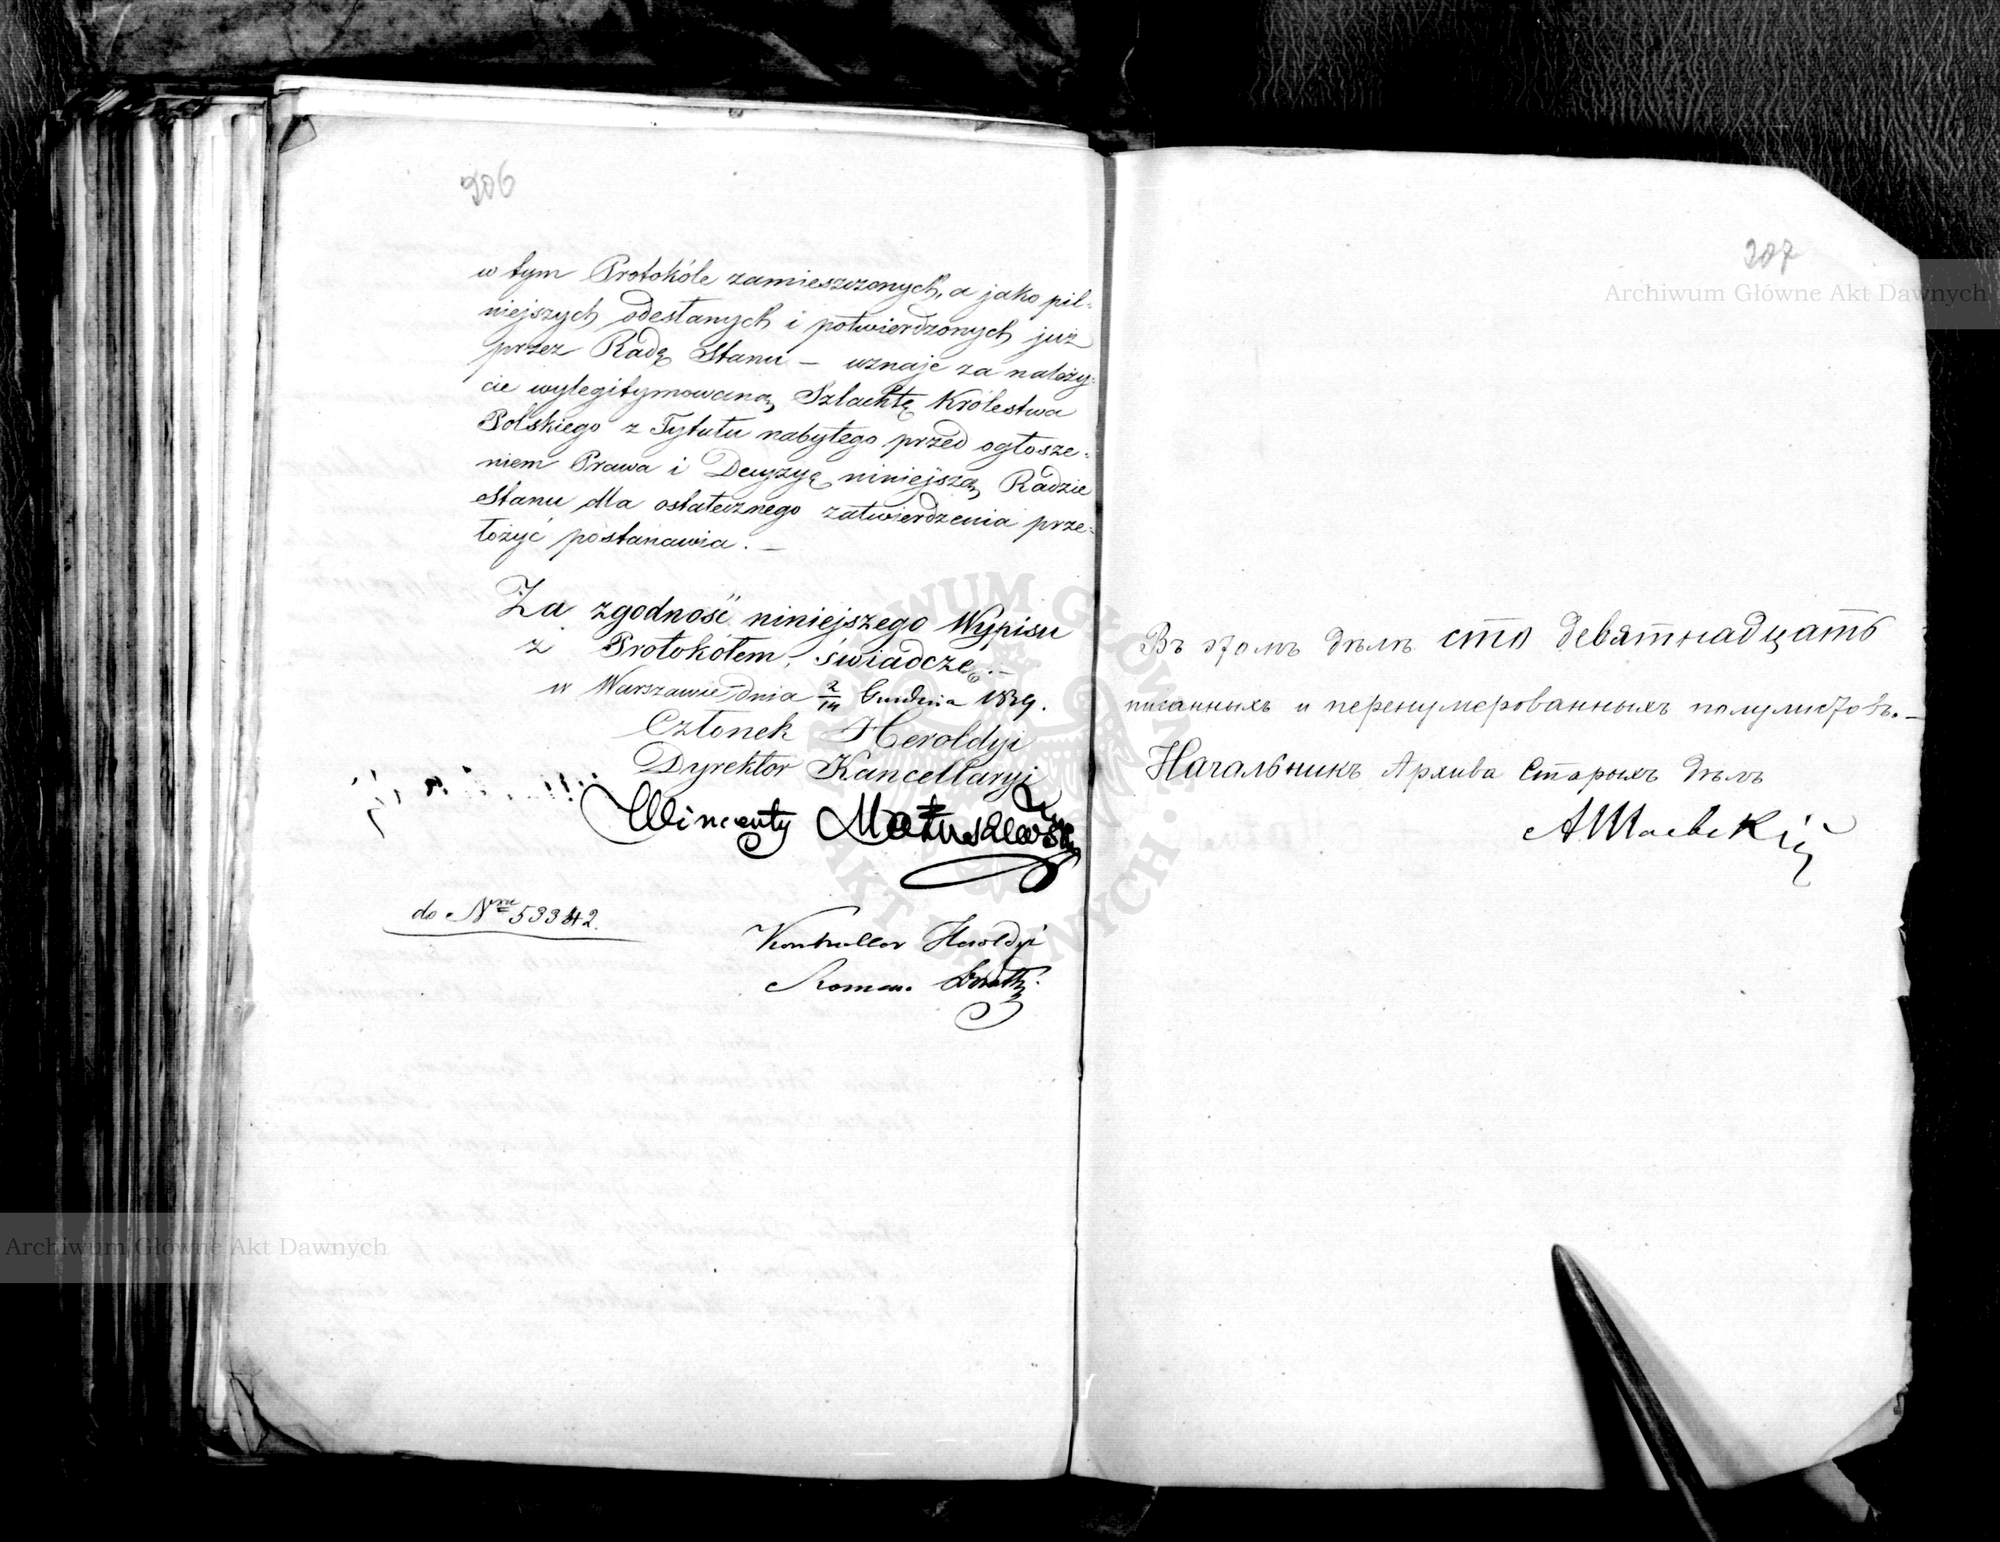 206
w tym Protokóle zamieszczonych, a jako pil-
niejszych odesłanych i potwierdzonych już
przez Radę Stanu – uznaje za należy-
cie wylegitymowaną Szlachtę Królestwa
Polskiego z Tytułu nabytego przed ogłosze-
niem Prawa i Decyzyę niniejszą Radzie
Stanu dla ostatecznego zatwierdzenia prze-
łożyć postanawia. –
Za zgodność niniejszego Wypisu
z Protokółem, świadczę. –
w Warszawie dnia 2/14 Grudnia 1839.
Członek Heroldyi
Dyrektor Kancellaryi
Wincenty Matuszewski
do Nru 53342.
Kontroller Heroldyi
Roman
207
Въ этомъ дѣлѣ сто девятнадцать
писанныхъ и перенумерованныхъ полулистовъ. –
Начальникъ Архива Старыхъ Дѣлъ
Archiwum Główne Akt Dawnych
Archiwum Główne Akt Dawnych
ARCHIWUM GŁÓWNE AKT DAWNYCH